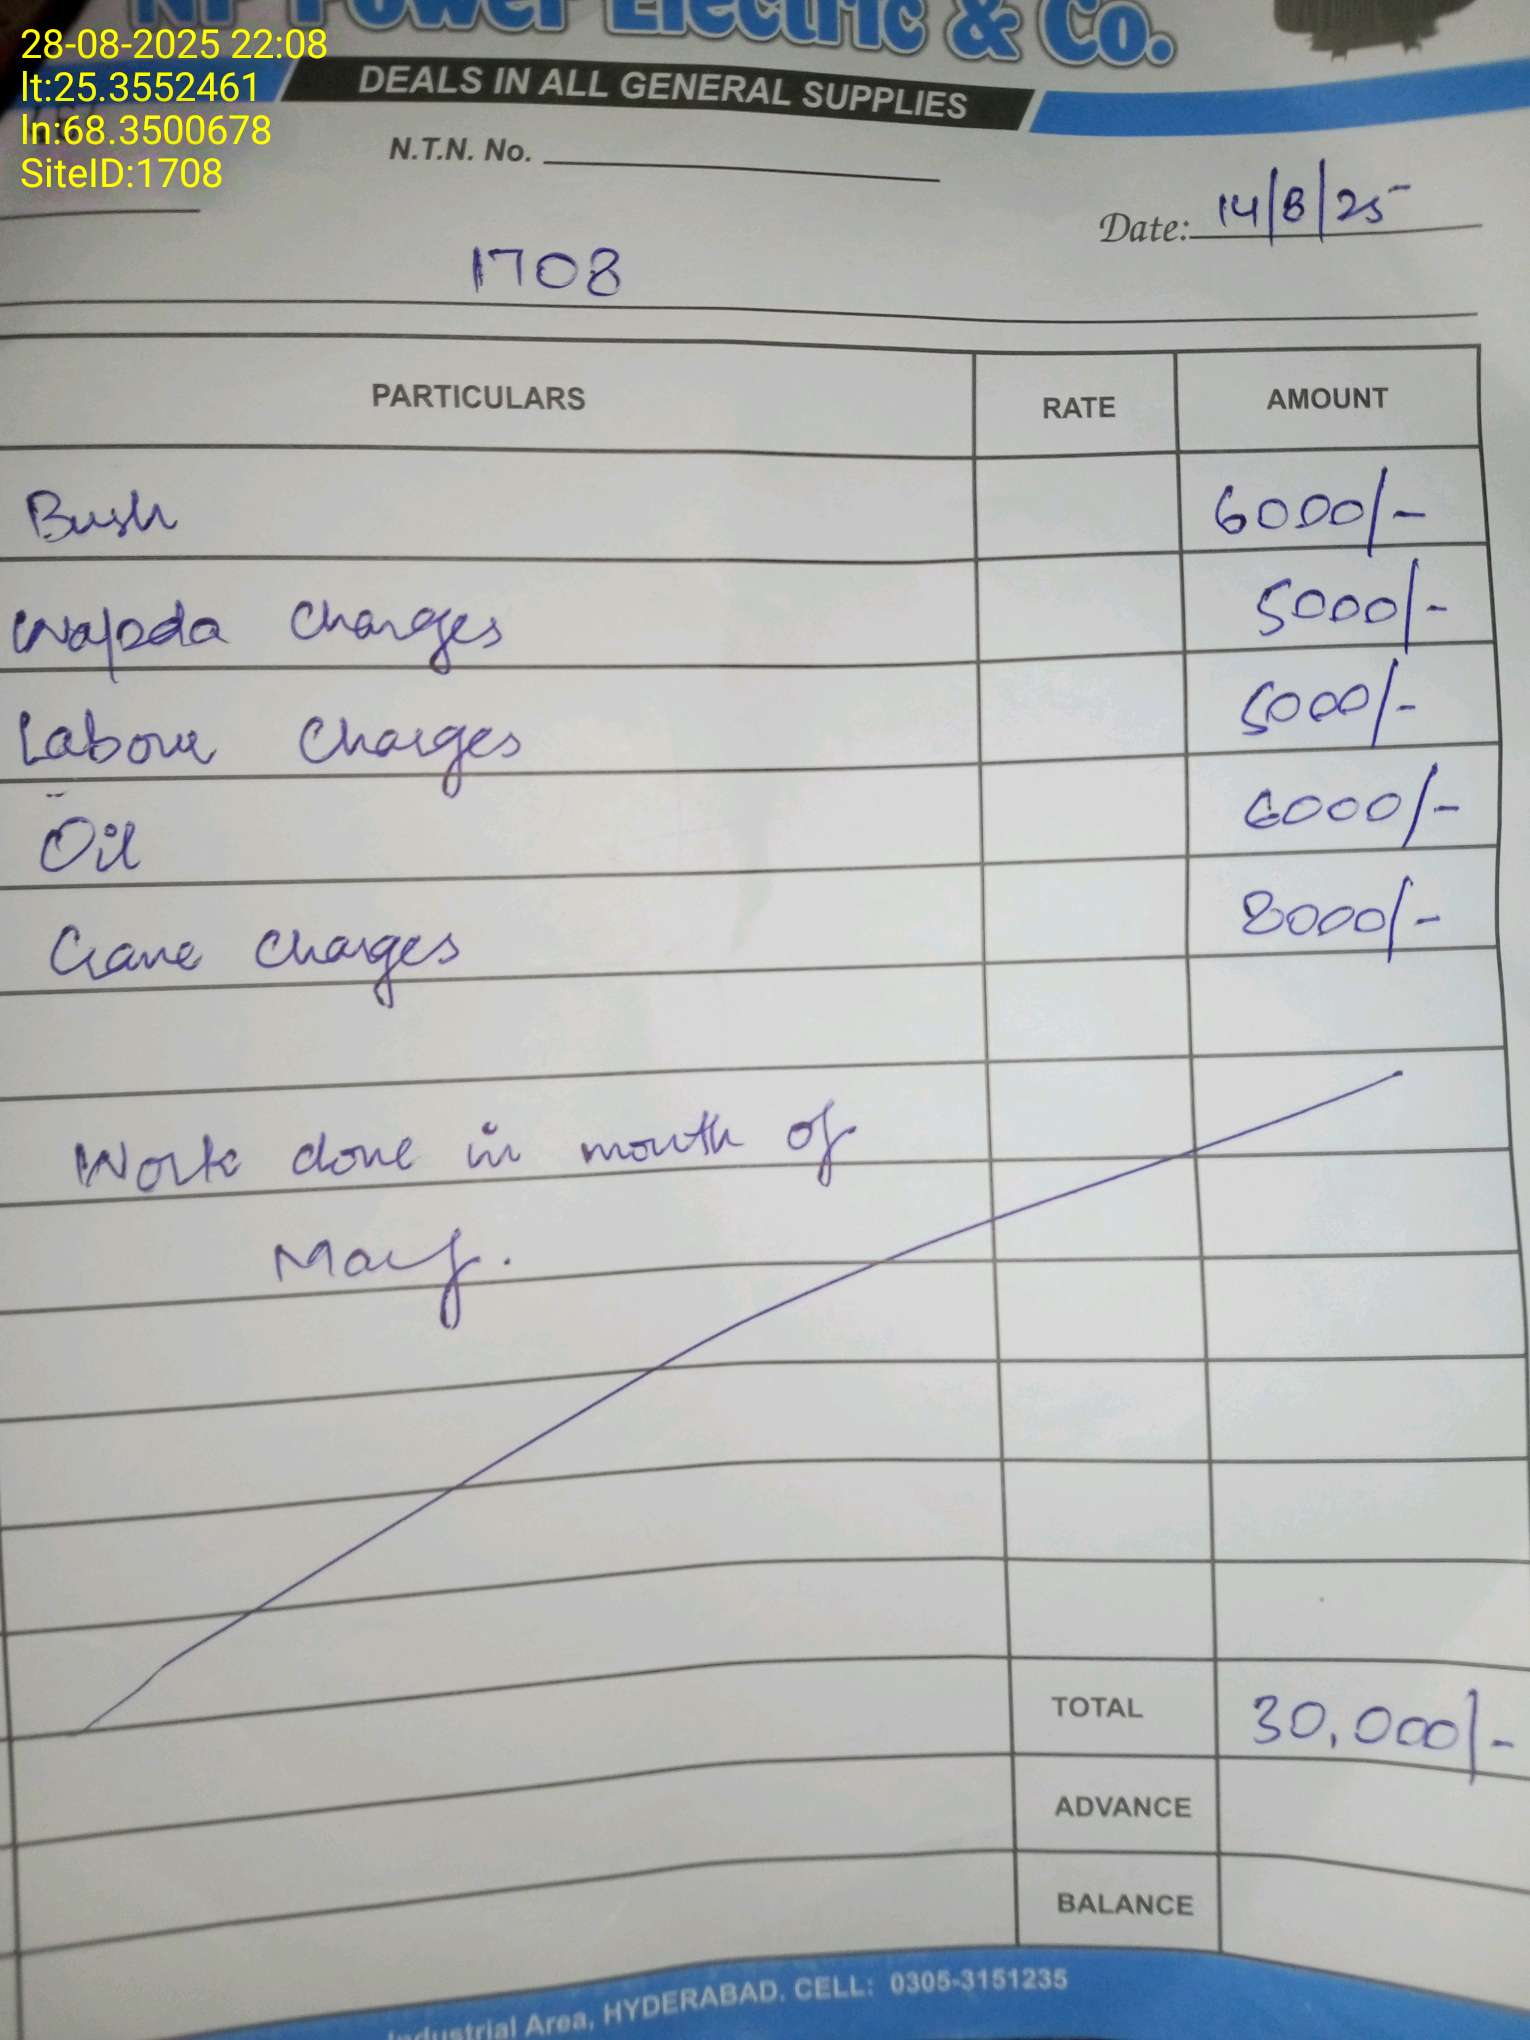 Power Electric & Co.
28-08-2025 22:08
lt:25.3552461
ln:68.3500678
SiteID:1708
DEALS IN ALL GENERAL SUPPLIES
N.T.N. No.
Date: 14/8/25
1708
PARTICULARS RATE AMOUNT
Bush 6000/-
Wapda Charges 5000/-
Labour Charges 5000/-
Oil 6000/-
Crane Charges 8000/-
Work done in month of
May.
TOTAL 30,000/-
ADVANCE
BALANCE
Industrial Area, HYDERABAD, CELL: 0305-3151235